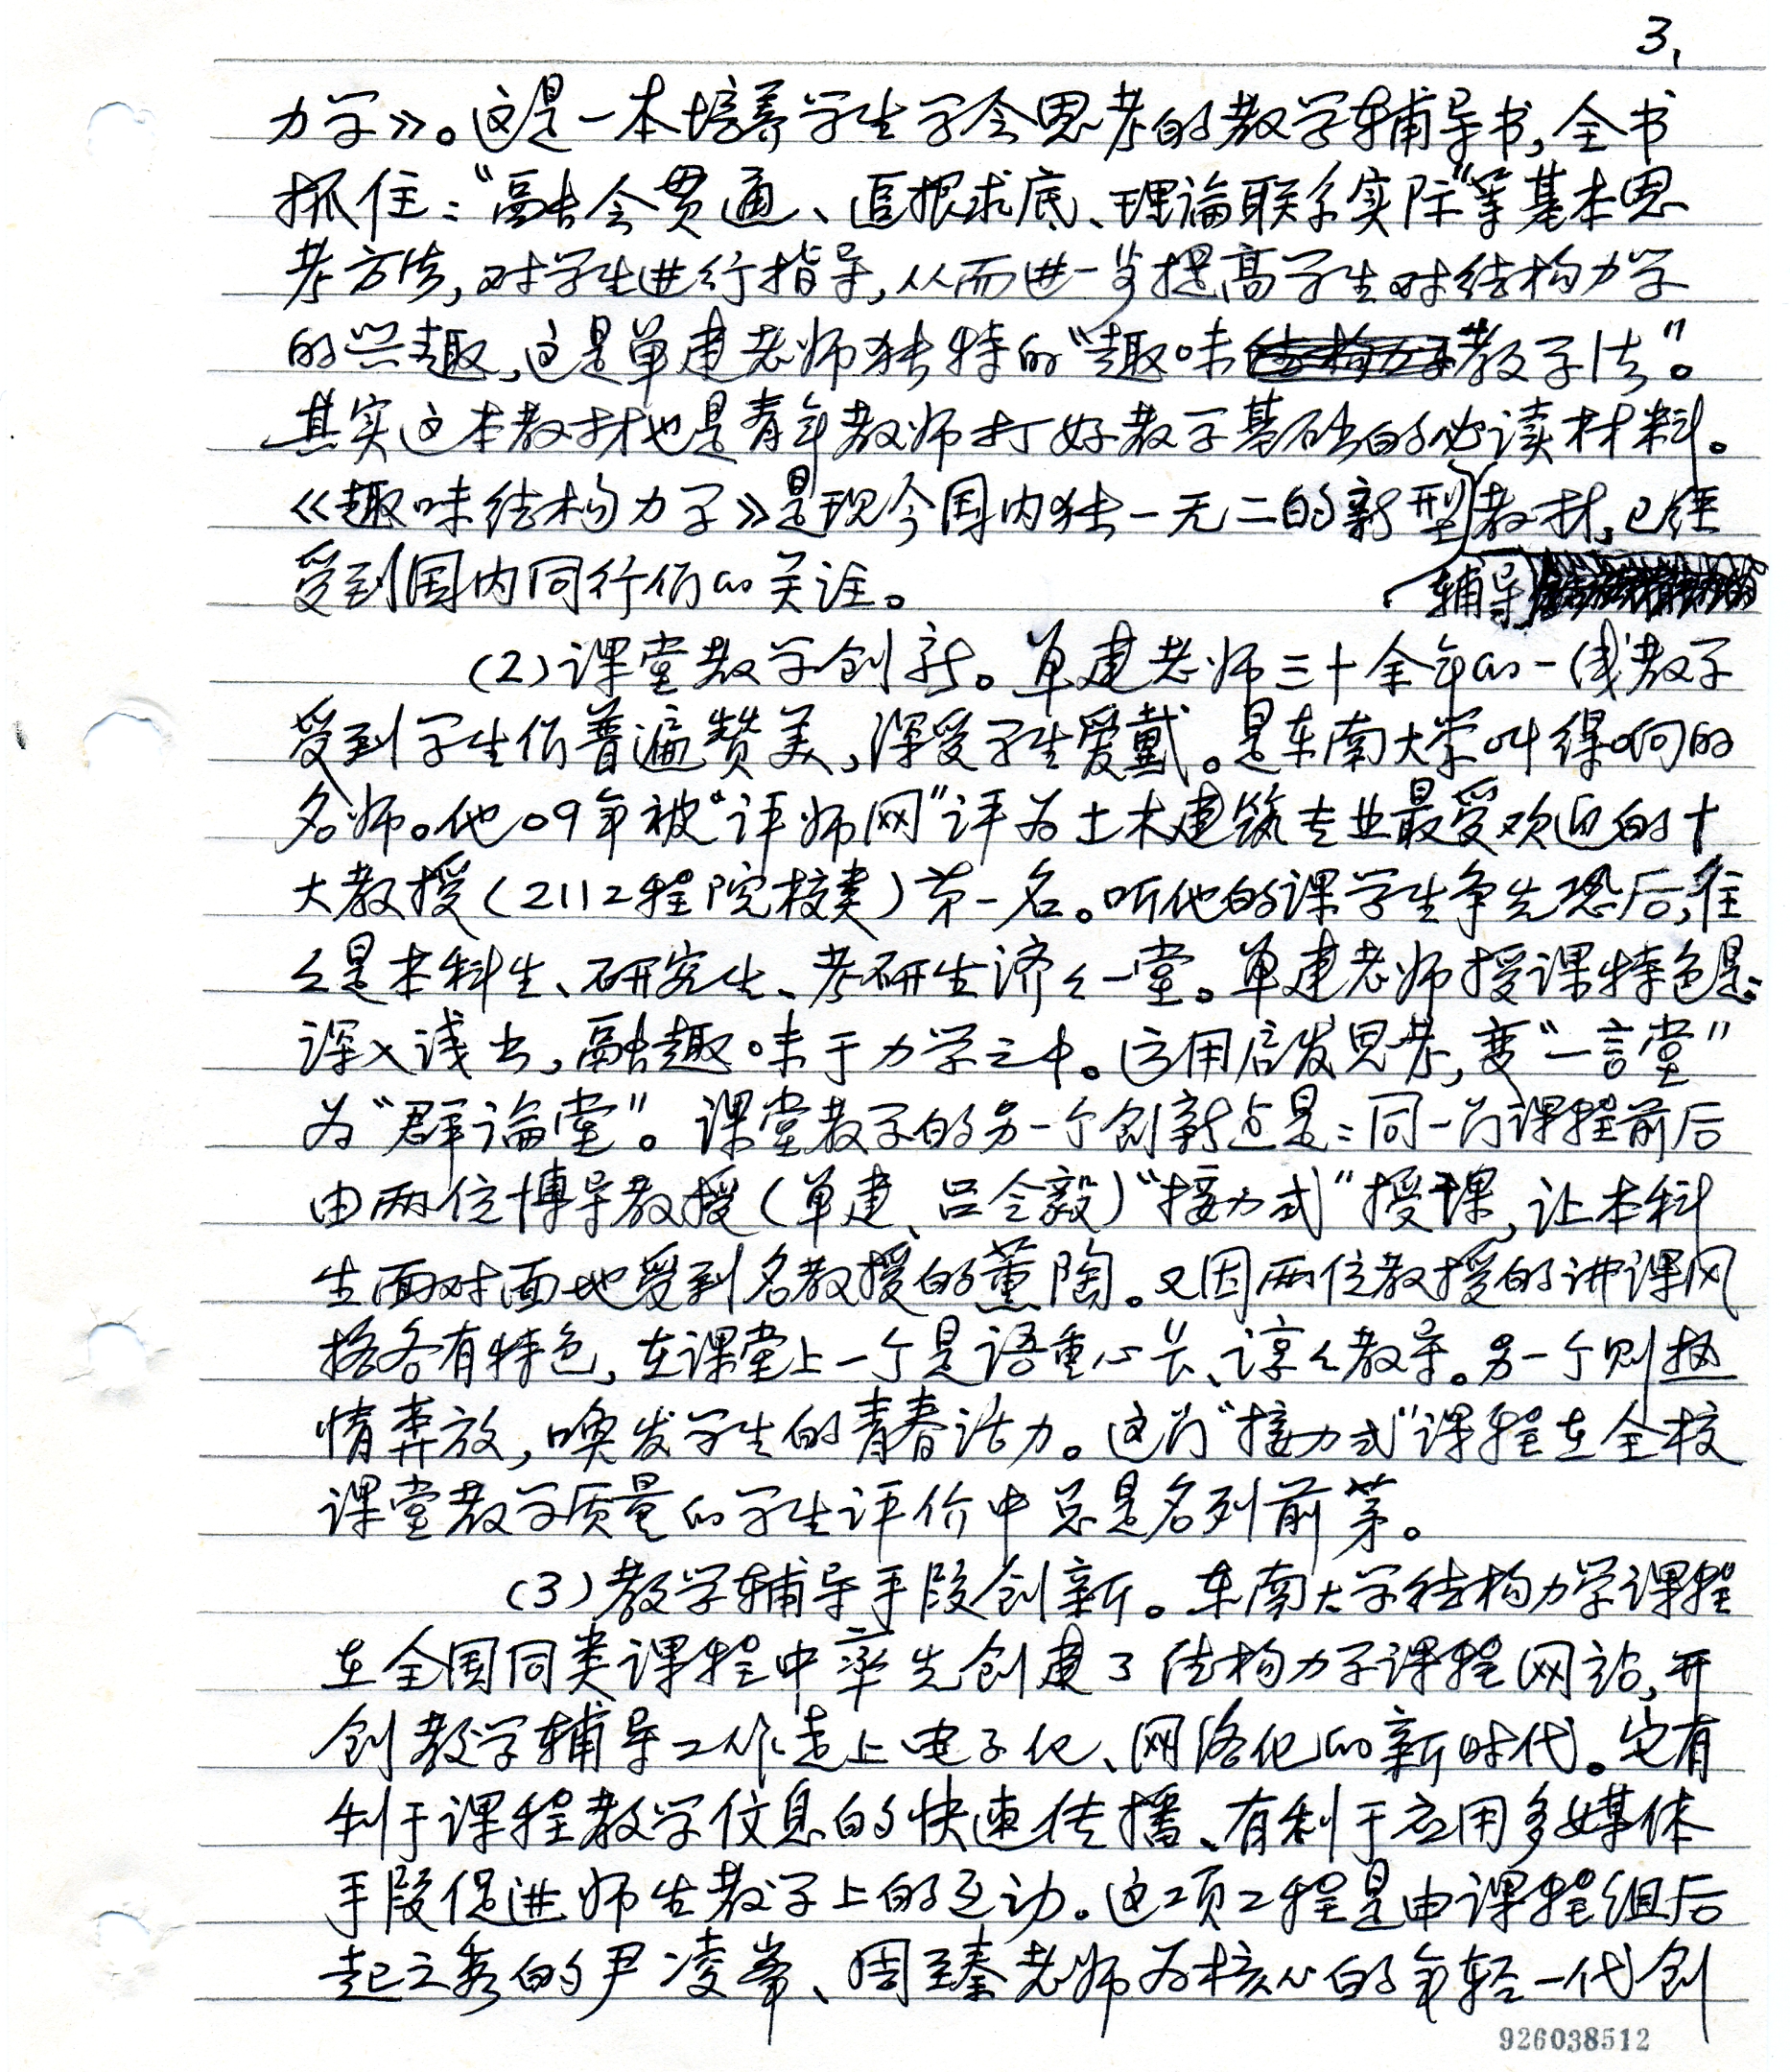 3,
力学》。这是一本培养学生学会思考的教学辅导书,全书
抓住:“融会贯通、追根求底、理论联系实际”等基本思
考方法,对学生进行指导,从而进一步提高学生对结构力学
的兴趣,这是单建老师独特的“趣味教学法”。
其实这本教材也是青年教师打好教学基础的必读材料。
《趣味结构力学》是现今国内独一无二的新型教材,已经
受到国内同行们的关注。
辅导
(2)课堂教学创新。单建老师三十余年的一线教学
受到学生们普遍赞美,深受学生爱戴。是东南大学叫得响的
名师。他09年被“评师网”评为土木建筑专业最受欢迎的十
大教授(211工程院校类)第一名。听他的课学生争先恐后,往
々是本科生、研究生、考研生济々一堂。单建老师授课特色是:
深入浅出,融趣味于力学之中。运用启发思考,变“一言堂”
为“群论堂”。课堂教学的另一个创新点是:同一门课程前后
由两位博导教授(单建、吕令毅)“接力式”授课,让本科
生面对面地受到名教授的薰陶。又因两位教授的讲课风
格各有特色,在课堂上一个是语重心长、谆々教导。另一个则热
情奔放,唤发学生的青春活力。这门“接力式”课程在全校
课堂教学质量的学生评价中总是名列前茅。
(3)教学辅导手段创新。东南大学结构力学课程
在全国同类课程中率先创建了结构力学课程网站,开
创教学辅导工作走上电子化、网络化的新时代。它有
利于课程教学信息的快速传播、有利于应用多媒体
手段促进师生教学上的互动。这项工程是由课程组后
起之秀的尹凌峰、周臻老师为核心的年轻一代创
926038512